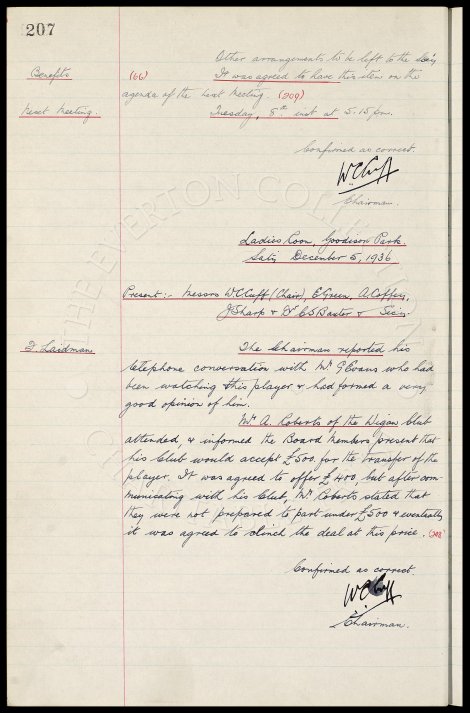 207
Other arrangements to be left to the Sec'y.
Benefits (66) It was agreed to have this item on the
agenda of the next meeting. (209)
Next Meeting. Tuesday, 8th inst at 5.15 pm.
Confirmed as correct.
W C Cuff
Chairman.
Ladies Room, Goodison Park.
Saty December 5, 1936
Present:- Messrs W C Cuff (Chair), E Green, A. Coffey,
J Sharp & Dr C S Baxter & Sec'y.
F. Laidman. The Chairman reported his
telephone conversation with Mr G Evans who had
been watching this player & had formed a very
good opinion of him.
Mr A. Roberts of the Wigan Club
attended, & informed the Board Members present that
his Club would accept £500. for the transfer of the
player. It was agreed to offer £400, but after com-
municating with his Club, Mr Roberts stated that
they were not prepared to part under £500 & eventually
it was agreed to clinch the deal at this price.
Confirmed as correct.
W C Cuff
Chairman.
THE EVERTON